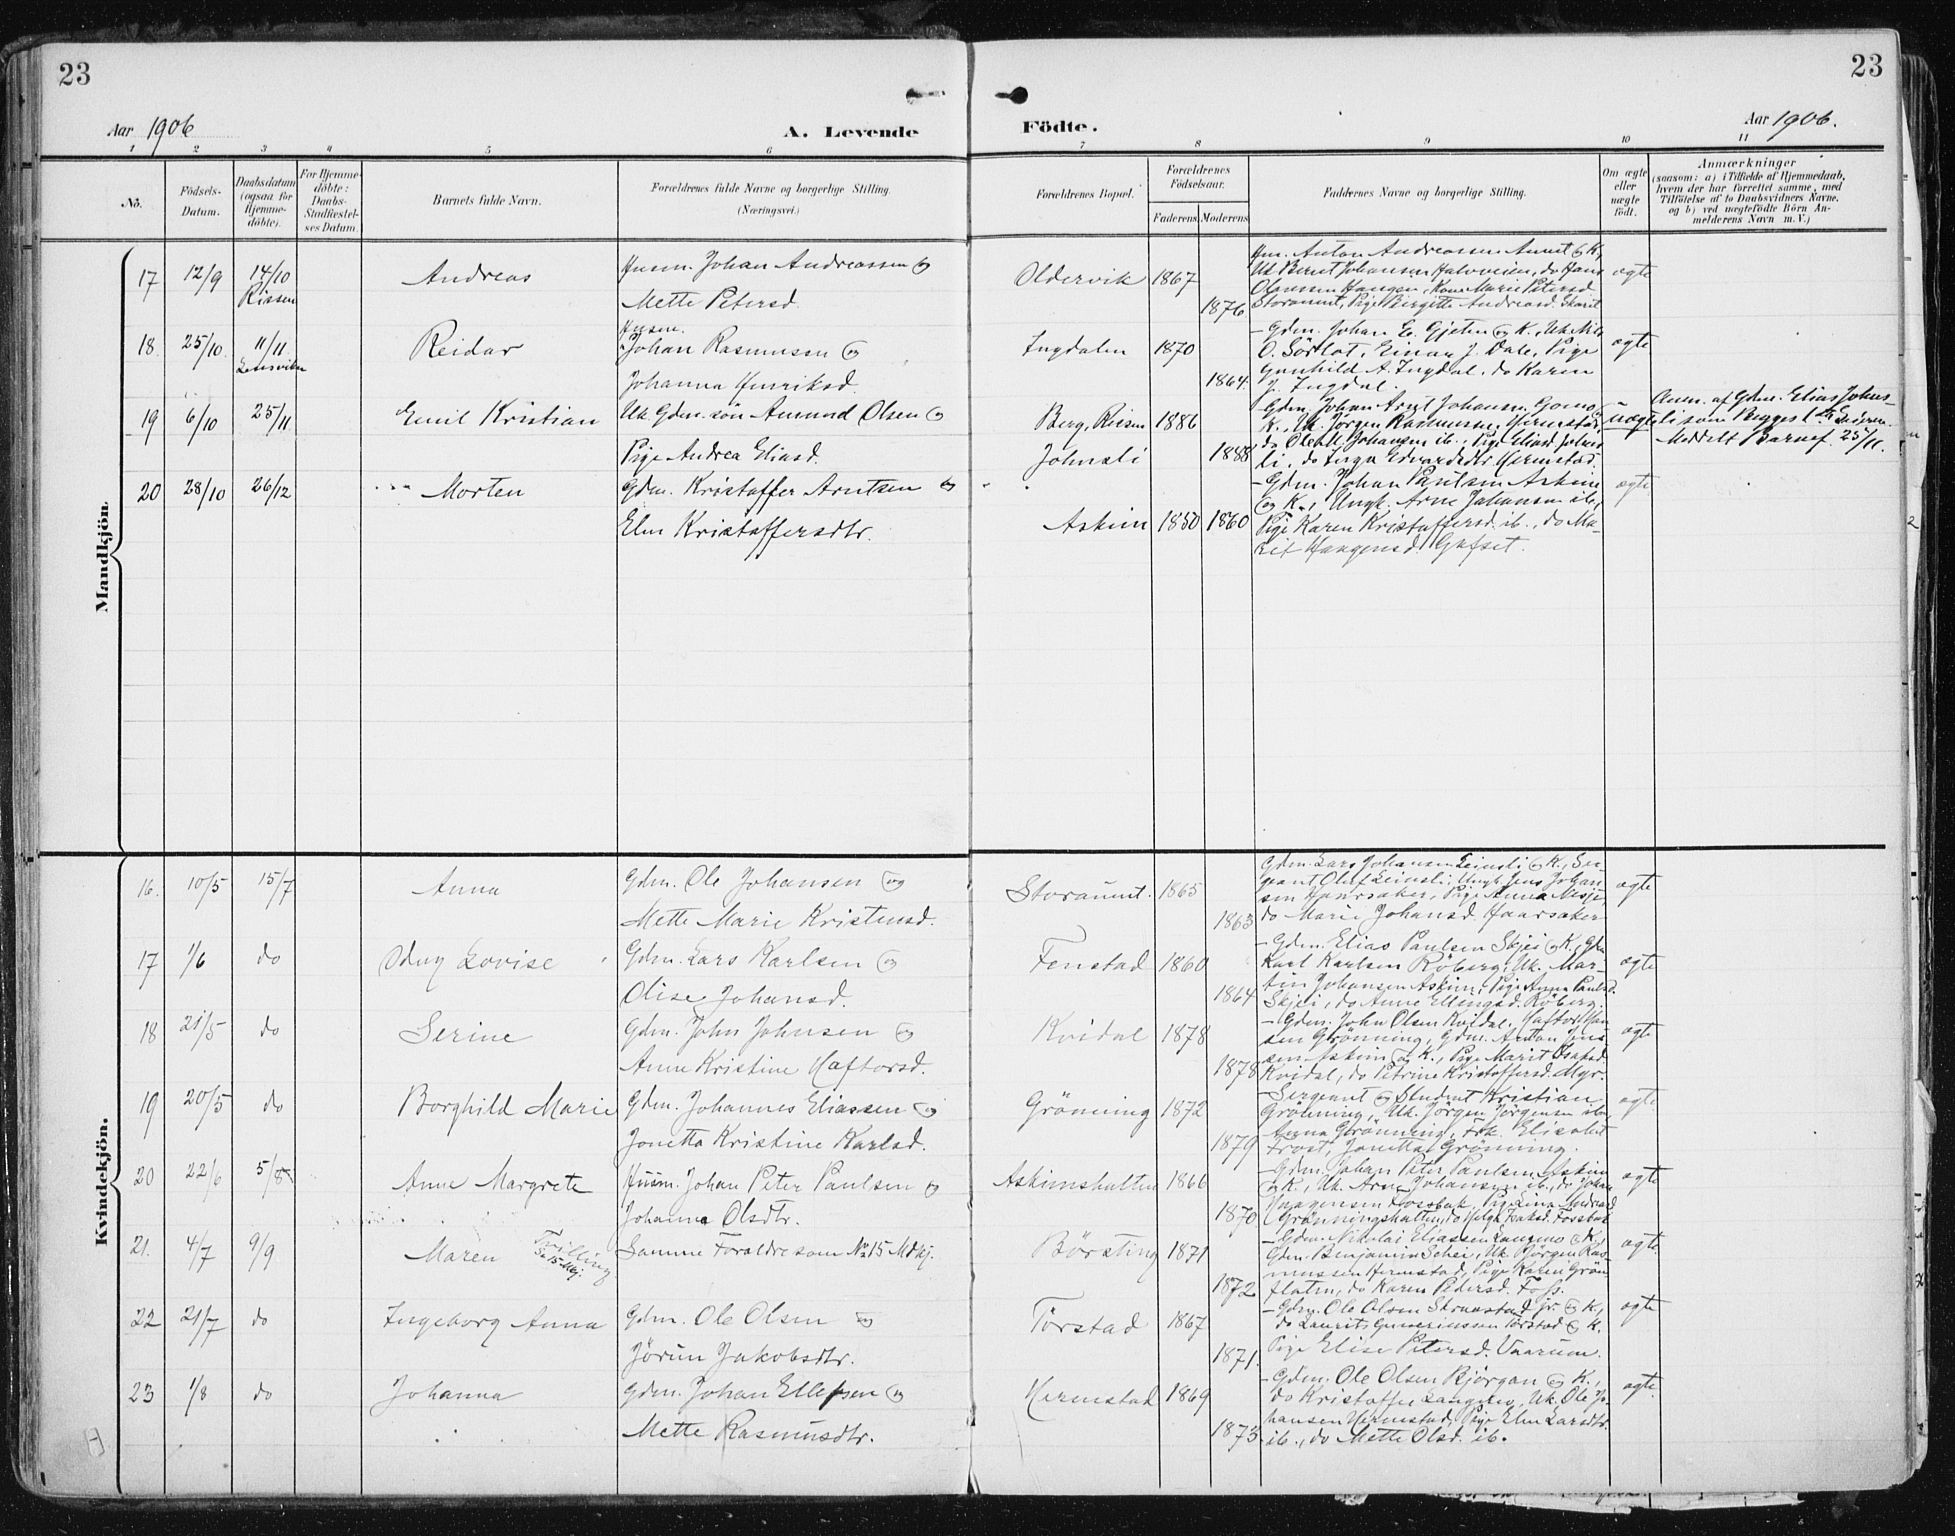 23
23
Aar 1906
A. Levende
Födte.
Aar 1906.
1 2 3 4 5 6 7 8 9 10 11
No.
Födsels-Datum.
Daabsdatum (ogsaa for Hjemme-döbte).
For Hjemme-döbte: Daabs-Stadfæstel-ses Datum.
Barnets fulde Navn.
Forældrenes fulde Navne og borgerlige Stilling. (Næringsvei.)
Forældrenes Bopæl.
Forældrenes Födselsaar.
Faderens Moderens
Faddernes Navne og borgerlige Stilling.
Om ægte eller uægte födt.
Anmærkninger
(saasom: a) i Tilfælde af Hjemmedaab, hvem der har forrettet samme, med Tilföielse af to Daabsvidners Navne, og b) ved uægtefödte Börn An-melderens Navn m. V.)
Mandkjön.
17 12/9 14/10 Rissen Andreas Husm. Johan Andreassen og
Mette Petersd.
Oldervik 1867 1876
Hus. Anton Andreassen Aunet og K,
Uk. Berent Johansen Halvveien, do Hans
Olaussen Haugen, Kone Marie Petersd.
Storaunet, Pige Birgitte Andreasd.
ægte
18. 25/10. 11/11 Lensviken Reidar Husm. Johan Rasmussen og
Johanna Henriksd.
Ingdalen 1870 1864.
– Gdm. Johan E. Gjeten og K., Uk. Nils
O. Sörlot, Einar J. Dale, Pige
Gunhild A. Ingdal, do Karen
J. Ingdal.
ægte
19 6/10 25/11 Emil Kristian Uk. Gdm. sön Amund Olsen og
Pige Andrea Eliasd.
Berg, Rissen 1886
Johnsli 1888
– Gdm. Johan Arnt Johansen Gomo
K., Uk. Jörgen Rasmussen Hermstad,
do Ole M. Johansen ib., Pige Eliasd. Johns-
li, do Inga Edvardsdtr. Hermstad.
uægte
Anm. af Gdm. Elias Johns-
li som
Meddelt Barnef. 25/11.
20 28/10 26/12 Morten Gdm. Kristoffer Arntsen og
Elen Kristoffersdtr.
Askim 1850 1860
– Gdm. Johan Paulsen Askim
og K., Ungk. Arne Johansen ib.,
Pige Karen Kristoffersd. ib., do Ma-
rit Haagensd. Gafset.
ægte
Kvindekjön.
16. 10/5 15/7 Anna Gdm. Ole Johansen og
Mette Marie Kristensd.
Storaunet. 1865 1863
Gdm. Lars Johansen Leinsli og K., Ser-
geant Oluf Leinsli, Ungk. Jens Johan-
sen Haarsaker, Pige Anna Mesje
do Marie Johansd. Haarsaker
ægte
17 1/6 do Odny Lovise Gdm. Lars Karlsen og
Olise Johansd.
Fenstad 1860 1864
– Gdm. Elias Paulsen Skjei og K., Gdm
Karl Karlsen Röberg, Uk. Mar-
tin Johansen Askim, Pige Anna Paulsd.
Skjei, do Anne Ellingsd. Röberg.
ægte
18 21/5 do Serine Gdm. John Johnsen og
Anne Kristine Haftorsd.
Kvidal 1878 1878
– Gdm. John Olsen Kvidal, Haftor Han-
sen Grönning, Gdm. Anton Jens-
sen Askim og K., Pige Marit Isaksd.
Kvidal, do Petrine Kristoffersd. Myr.
ægte
19 20/5 do Borghild Marie Gdm. Johannes Eliassen og
Jonetta Kristine Karlsd.
Grönning 1872 1879
– Sergeant og Student Kristian
Grönning, Uk. Jörgen Jörgensen ibm,
Anna Grönning, Frk. Elisabet
Frost, Jonetta Grönning.
ægte
20 22/6 5/8 Anne Margrete Husm. Johan Peter Paulsen og
Johanna Olsdtr.
Askimshatten 1866 1870
– Gdm. Johan Peter Paulsen Askim
og K., Uk. Arne Johansen ib., do Johan
Haagensen Forsbak, Pige Lina Andreasd
Grönningshatten, do Helga Isaksd. Forsbak
ægte
21. 4/7 9/9 Maren Tvilling
Se 15 Mkj.
Samme Forældre som No 15 Mdkj.
Börsting 1871 1872
– Gdm. Nikolai Eliassen Langmo og K.
Gdm. Benjamin Schei, Uk. Björgen Ras-
mussen Hermstad, Pige Karen Grön-
flaten, do Karen Pedersd. Foss.
ægte.
22 21/7 do Ingeborg Anna Gdm. Ole Olsen og
Jörun Jakobsdtr.
Törstad 1867 1871.
– Gdm. Ole Olsen Strandstad jr. og K,
do Laurits Gunneriussen Törstad og K.
Pige Elise Petersd. Vaarum.
ægte
23 1/8 do Johanna Gdm. Johan Ellefsen og
Mette Rasmusdtr.
Hermstad 1869 1873
– Gdm. Ole Olsen Bjorgan og K.,
do Kristoffer Langmo, Uk. Ole Jo-
hansen Hermstad, Pige Elen Larsdtr.
ib., do Mette Olsd. ib.
ægte.